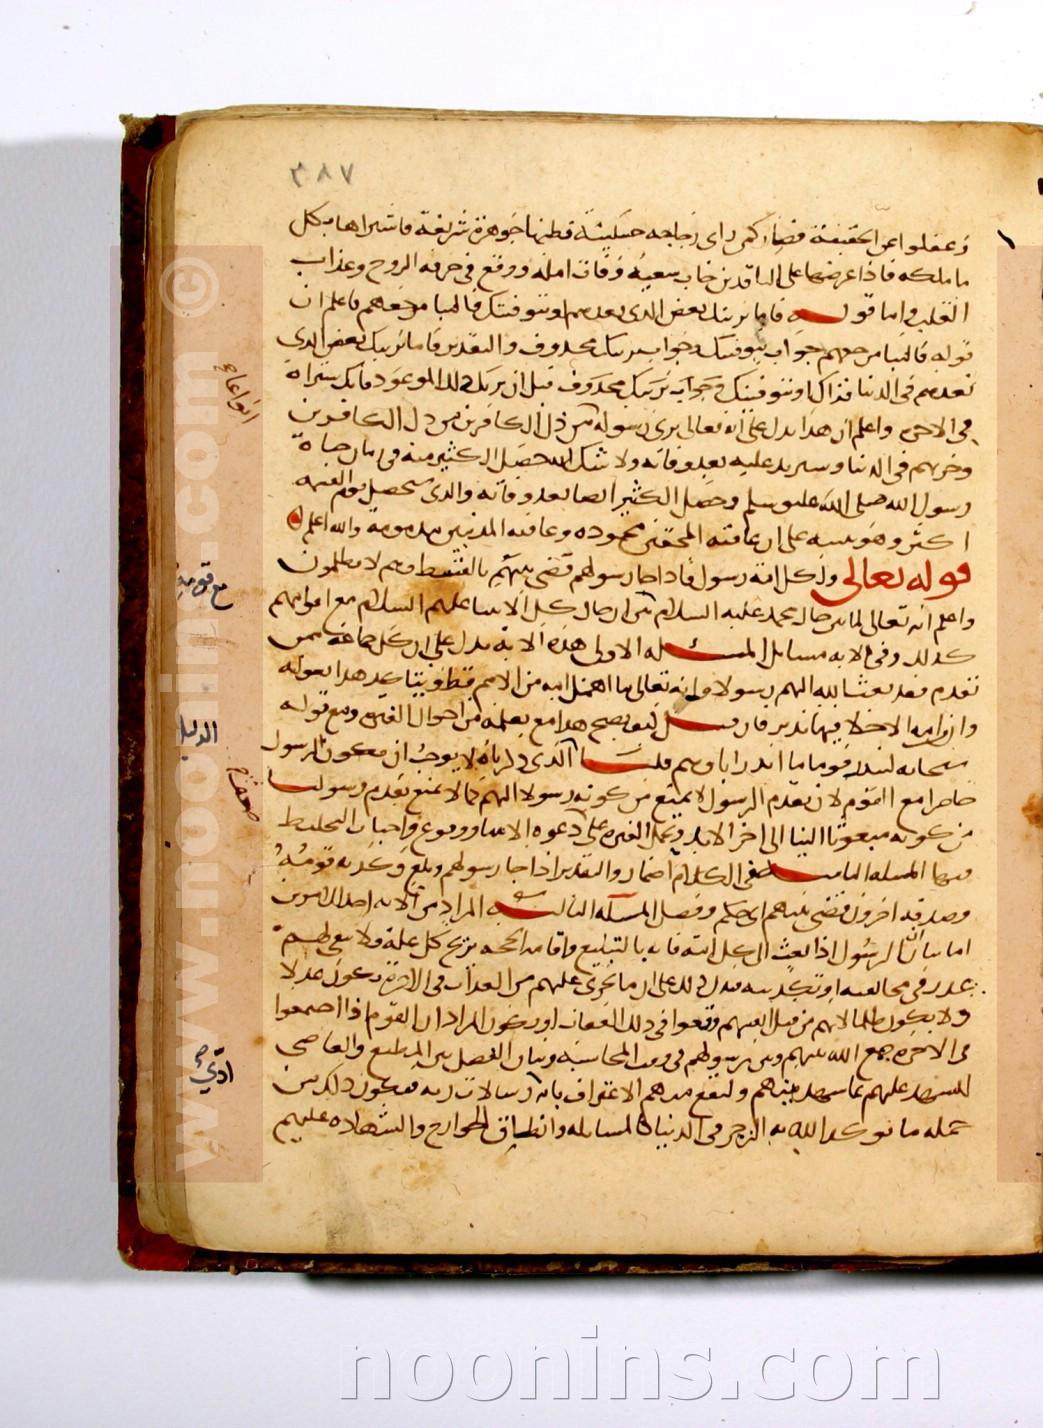 ٣٨٧
وغفلوا عن الحقيقة فصار كمن راى زجاجه حسينة فظنها جوهرة شريفة فاشتراها بكل
ما ملكه فاذا عرضها على الناقدين خاب سعيه وفات امله ووقع في حرقه الروح وعذاب
القلب واما قوله فاما نرينك بعض الذي نعدهم او نتوفينك فالينا مرجعهم فاعلم ان
قوله فالينا مرجعهم جواب نتوفينك وجواب نرينك محذوف والتقدير فاما نرينك بعض الذي
نعدهم في الدنيا فذاك او نتوفينك قبل ان نرينك ذلك الموعود فانك ستراه
في الاخرة واعلم ان هذا يدل على انه تعالى يرى رسوله من ذل الكافرين
وخزيهم في الدنيا وسيزيد عليه بعد وفاته ولا شك انه حصل الكثير منه في زمان حياة
رسول الله صلى الله عليه وسلم وحصل الكثير ايضا بعد وفاته والذي سيحصل يوم القيمه
اكثر وهو تنبيه على ان عاقبه المحقين محموده وعاقبه المذنبين مذمومة والله اعلم
قوله تعالى ولكل امة رسول فاذا جا رسولهم قضى بينهم بالقسط وهم لا يظلمون
واعلم انه تعالى لما بين حال محمد عليه السلام بين ان حال كل الانبيا عليهم السلام مع اقوامهم
كذلك وفي الايه مسايل المسئله الاولى هذه الاية تدل على ان كل جماعة ممن
تقدم فقد بعث الله اليهم رسولا وانه تعالى ما اهمل امه من الامم قط ويتاكد هذا بقوله
وان من امه الا خلا فيها نذير فان قيل كيف يصح هذا مع ما يعلمه من احوال الفترة ومع قوله
سبحانه لتنذر قوما ما انذر اباوهم قلنا الذي ذكرناه لا يوجب ان يكون الرسول
حاضرا مع القوم لان تقدم الرسول لا يمنع من كونه رسولا اليهم كما لا يمنع تقدم رسولنا
من كونه مبعوثا الينا الى اخر الابد وتحمل الفترة على دعوه الانبيا ووقوع موجبات التخليط
فيها المسله الثانيه في الكلام اضمار والتقدير اذا جا رسولهم وبلغ وكذبه قومه
وصدقه اخرون قضى بينهم اي حكم وفصل المسئلة الثالثه المراد من الايه احد الامرين
اما بيان ان الرسول اذا بعث الى كل امة فانه بالتبليغ واقامه الحجه يزيح كل علة ولا يبقى لهم
عذر في مخالفته او تكذيبه فيدل ذلك على ان ما يجرى عليهم من العذاب في الاخرة يكون عدلا
ولا يكون ظلما لانهم من قبل انفسهم وقعوا في ذلك العقاب او يكون المراد ان القوم اذا اجتمعوا
في الاخرة جمع الله بينهم وبين رسولهم في وقت المحاسبة وبيان الفصل بين المطيع والعاصي
ليشهد عليهم بما شهد بينهم وليقع منهم الاعتراف بانه رسالات ربه فيكون ذلك من
جمله ما يوكد الله به الزجر في الدنيا كالمسايله وانطاق الجوارح والشهاده عليهم
مع قومه
الدليل
© www.noonins.com
noonins.com